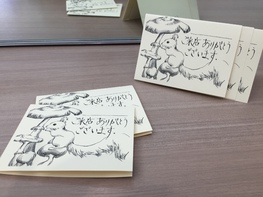 ご来店 ありがとう
ございます。
ご来店 ありがとう
ございます。